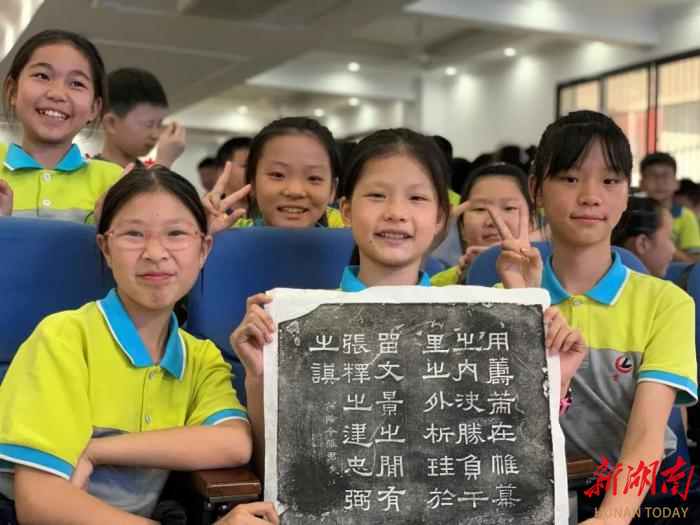 用籌策在帷幕
之内決勝負千
里之外析珪於
留文景之間有
張釋之建忠弼
之謨
蕩陰令張君
新湖南
HUNAN TODAY